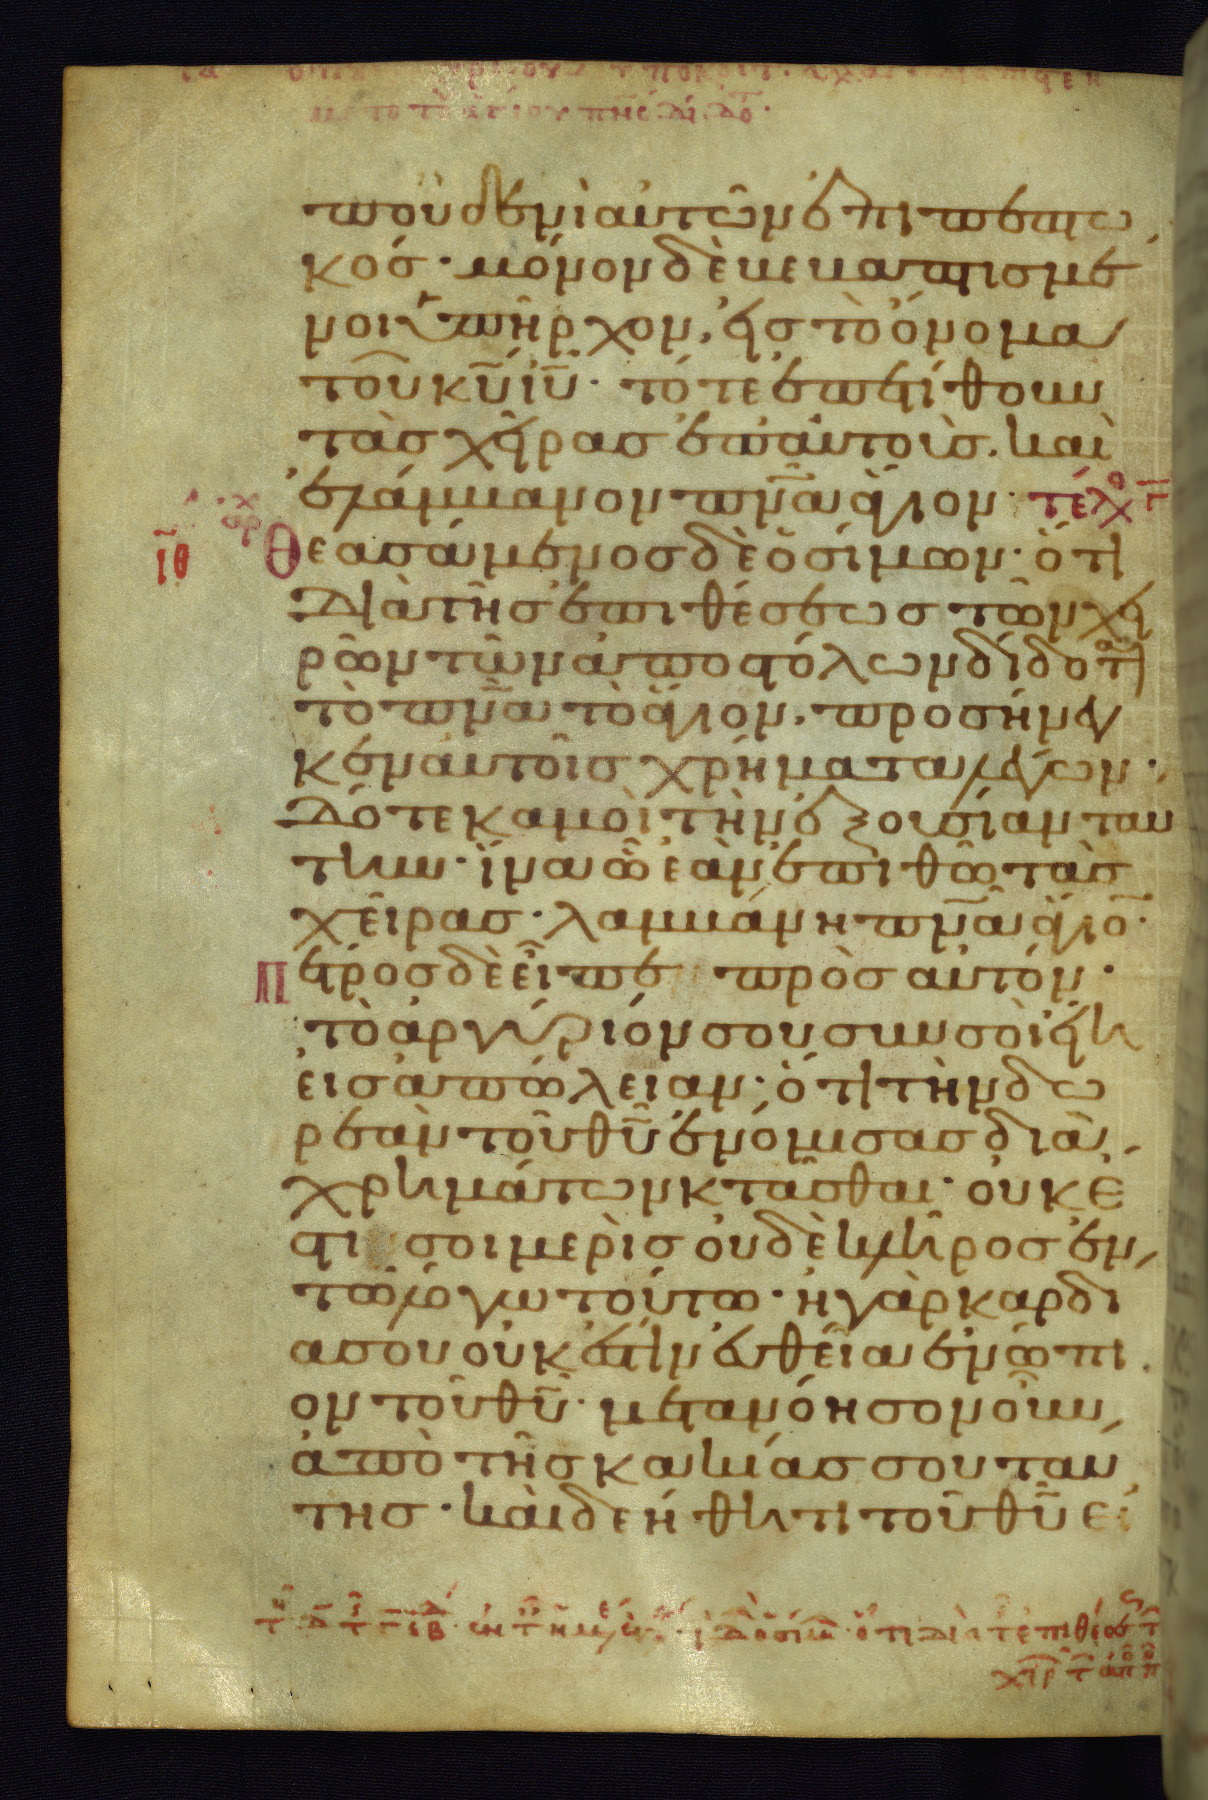 πω οὐδενὶ αὐτῶν ἐπιπεπτω
κός· μόνον δὲ βεβαπτισμέ
νοι ὑπῆρχον, εἰς τὸ ὄνομα
τοῦ κῡ ῑῡ· τότε ἐπετίθουν
τὰς χεῖρας ἐπ' αὐτοὺς· καὶ
ἐλάμβανον πν̄ᾱ ἅγιον· τέλ
ιθ Θεασάμενος δὲ ὁ σίμων· ὅτι
διὰ τῆς ἐπιθέσεως τῶν χει
ρῶν τῶν ἀποστόλων δίδοται
τὸ πν̄ᾱ τὸ ἅγιον, προσήνεγ
κεν αὐτοῖς χρήματα λέγων·
δότε κἀμοὶ τὴν ἐξουσίαν ταύ
την· ἵνα ᾧ ἐὰν ἐπιθῶ τὰς
χεῖρας· λαμβάνη πν̄ᾱ ἅγιον·
Πέτρος δὲ εἶπε πρὸς αὐτόν·
τὸ ἀργύριόν σου σὺν σοὶ εἴη
εἰς ἀπώλειαν· ὅτι τὴν δω
ρεὰν τοῦ θῡ ἐνόμισας διὰ
χρημάτων κτᾶσθαι· οὐκ ἔ
στι σοι μερὶς οὐδὲ κλῆρος ἐν
τῶ λόγω τούτω· ἡ γὰρ καρδί
α σου οὐκ ἔστιν εὐθεῖα ἐνώπι
ον τοῦ θῡ· μετανόησον οὖν
ἀπὸ τῆς κακίας σου ταύ
της· καὶ δεήθητι τοῦ θῡ εἰ